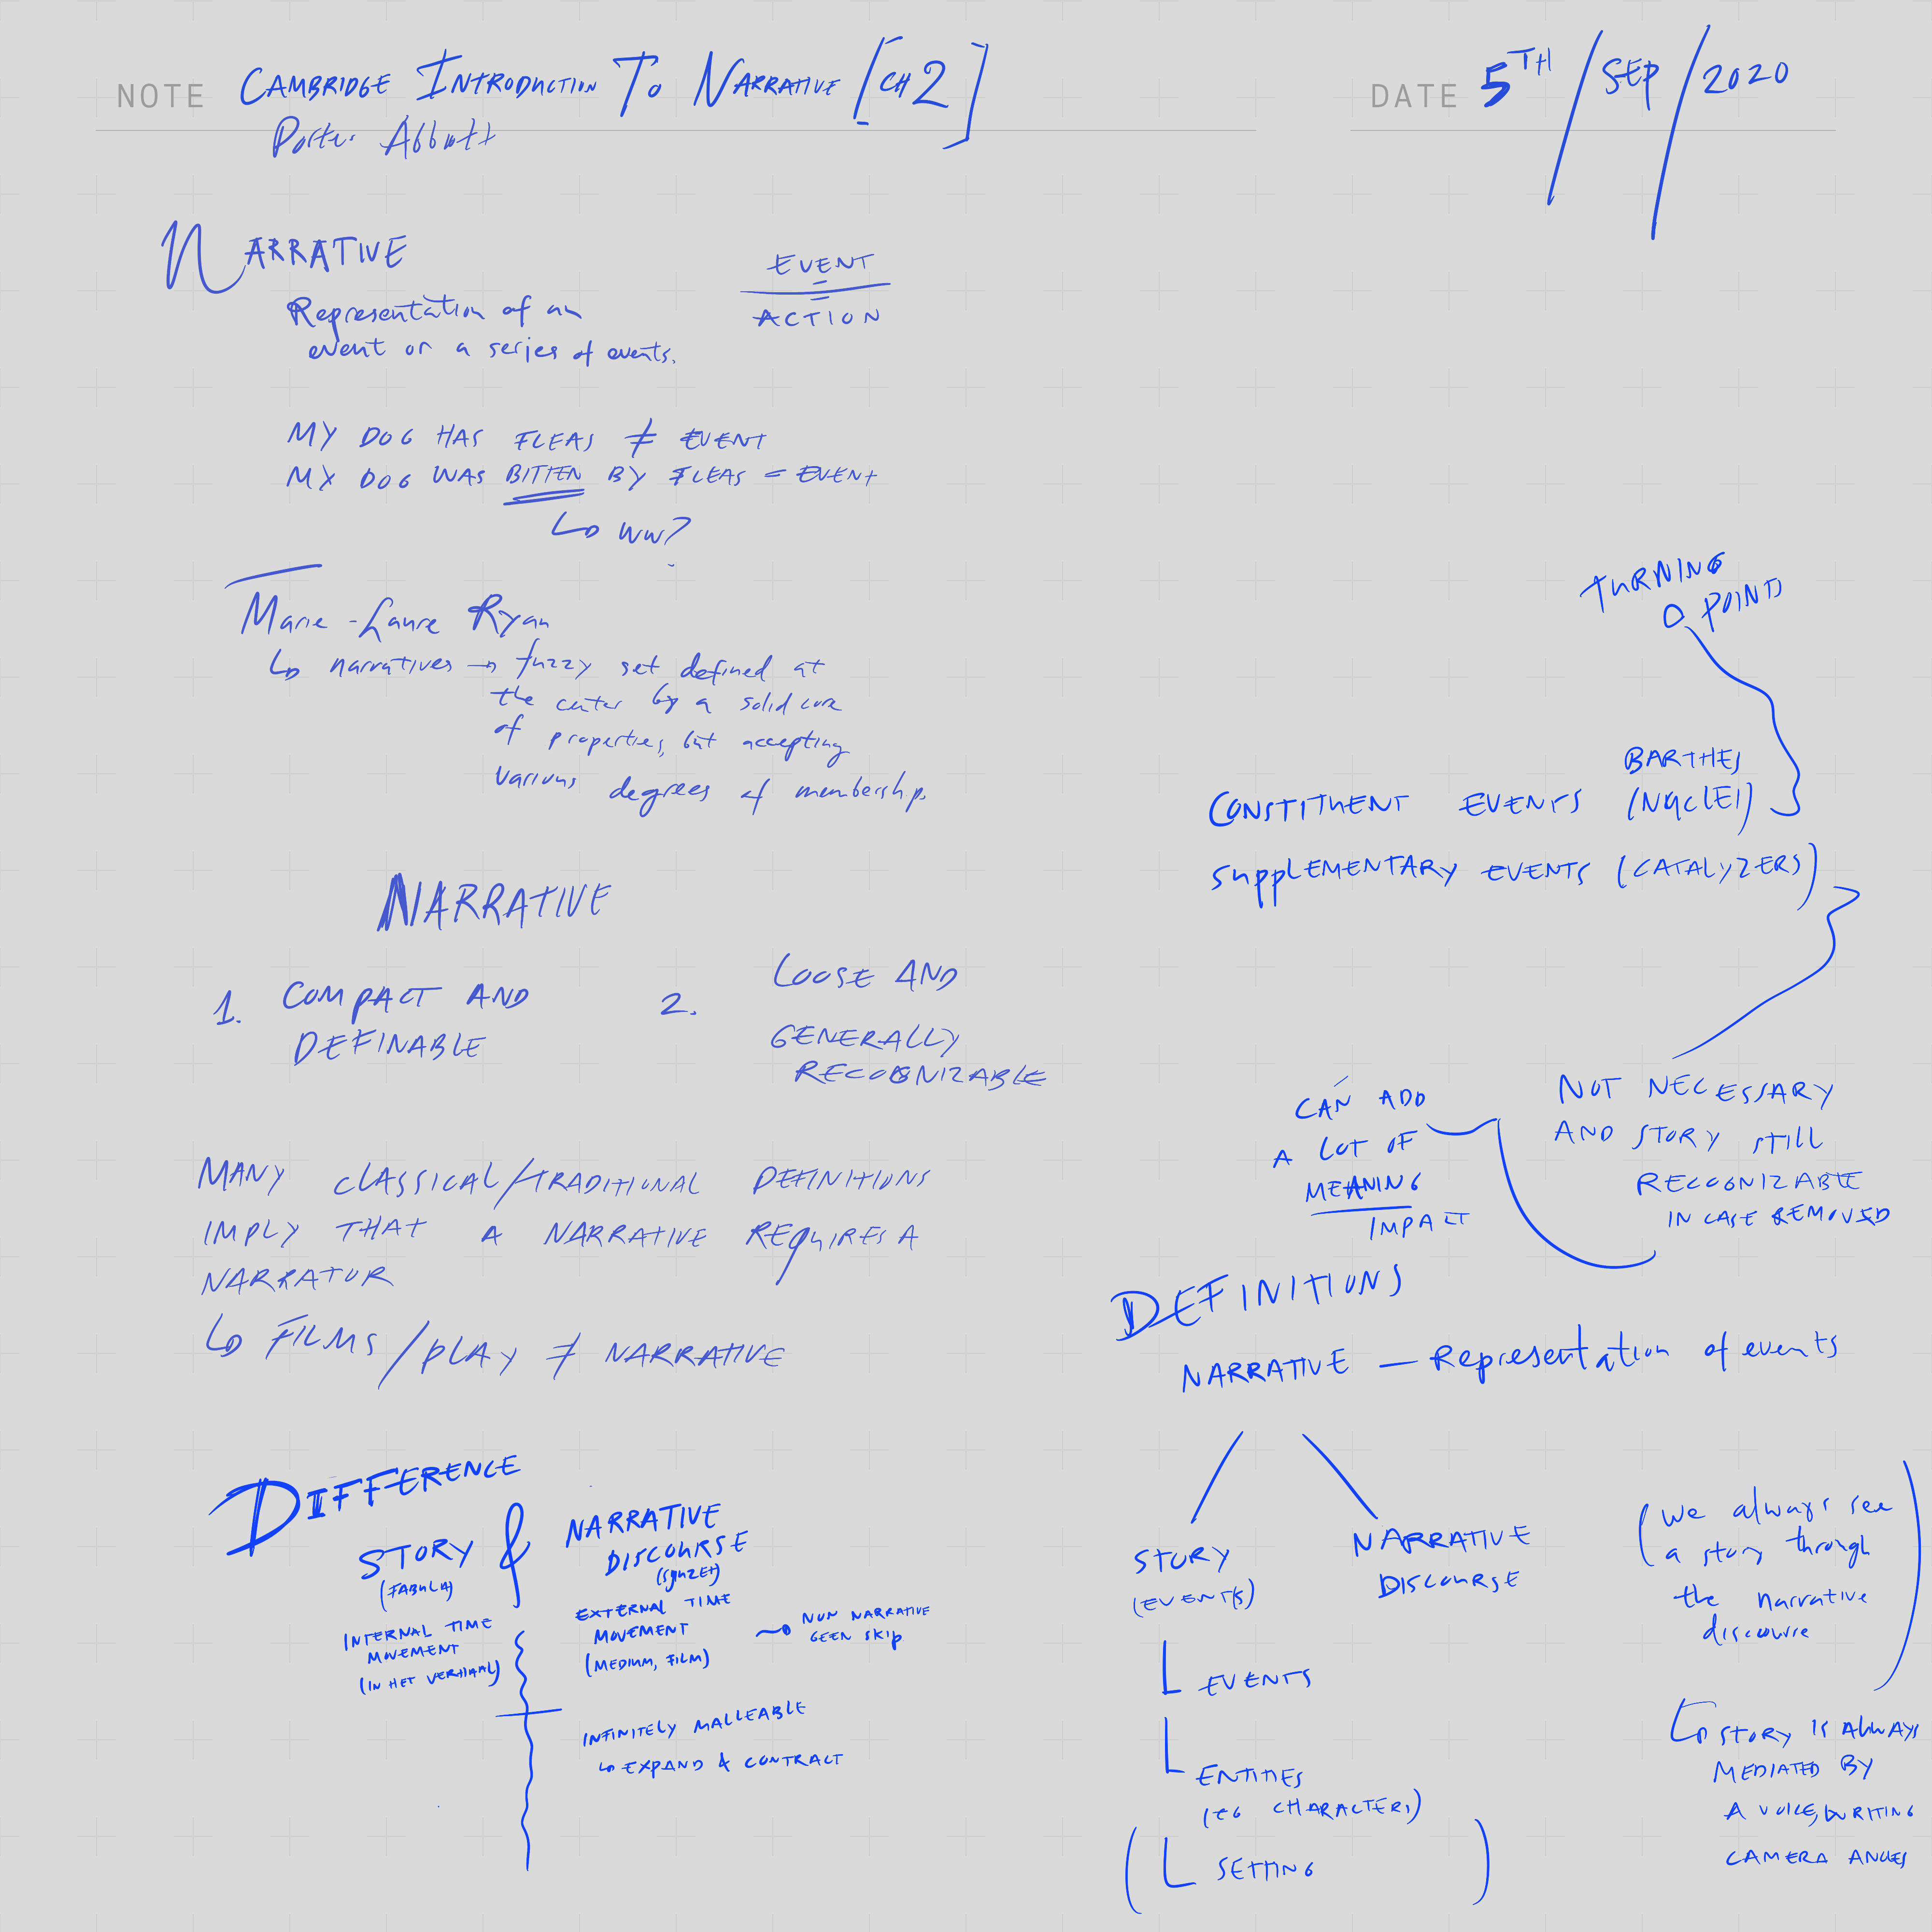 NOTE CAMBRIDGE INTRODUCTION TO NARRATIVE [CH 2]
Porter Abbott
DATE 5TH / SEP / 2020
NARRATIVE
Representation of an
event or a series of events.
EVENT
=
ACTION
MY DOG HAS FLEAS ≠ EVENT
MY DOG WAS BITTEN BY FLEAS = EVENT
↳ WW?
Marie-Laure Ryan
↳ narratives → fuzzy set defined at
the center by a solid core
of properties, but accepting
various degrees of membership.
NARRATIVE
1. COMPACT AND
DEFINABLE
2. LOOSE AND
GENERALLY
RECOGNIZABLE
MANY CLASSICAL/TRADITIONAL DEFINITIONS
IMPLY THAT A NARRATIVE REQUIRES A
NARRATOR
↳ FILMS/PLAY ≠ NARRATIVE
DIFFERENCE
STORY &
(FABULA)
INTERNAL TIME
MOVEMENT
(IN HET VERHAAL)
NARRATIVE
DISCOURSE
(SJUZET)
EXTERNAL TIME
MOVEMENT
(MEDIUM, FILM)
→ NON NARRATIVE
GEEN SKIP
INFINITELY MALLEABLE
↳ EXPAND & CONTRACT
TURNING
POINTS
BARTHES
CONSTITUENT EVENTS (NUCLEI)
SUPPLEMENTARY EVENTS (CATALYZERS)
NOT NECESSARY
AND STORY STILL
RECOGNIZABLE
IN CASE REMOVED
CAN ADD
A LOT OF
MEANING
IMPACT
DEFINITIONS
NARRATIVE — Representation of events
STORY
(EVENTS)
NARRATIVE
DISCOURSE
EVENTS
ENTITIES
(EG CHARACTERS)
( SETTING )
(we always see
a story through
the narrative
discourse)
↳ STORY IS ALWAYS
MEDIATED BY
A VOICE, WRITING
CAMERA ANGLES